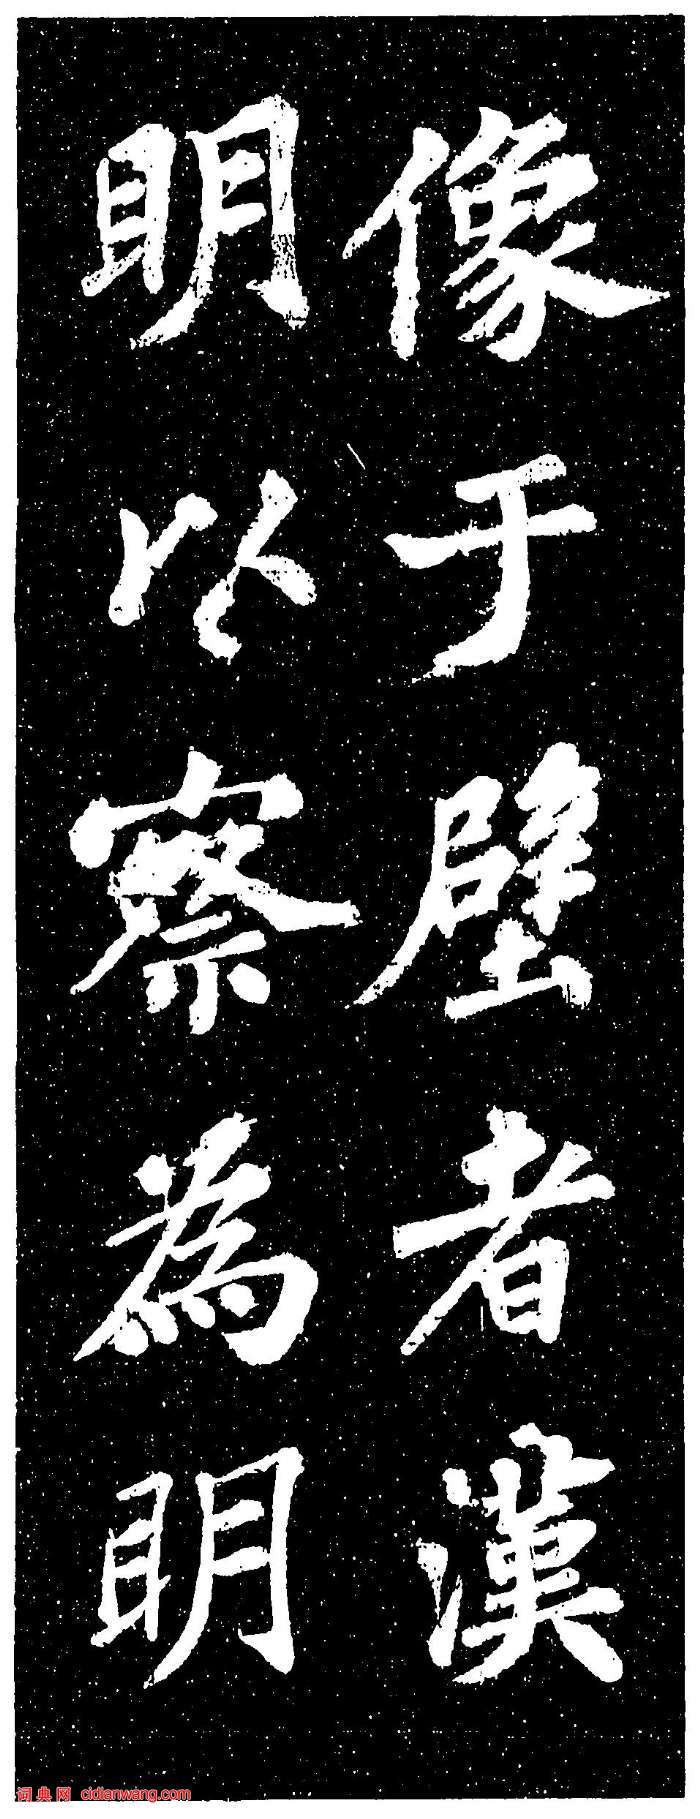 像于壁者漢
明以察為明
词典网 cidianwang.com